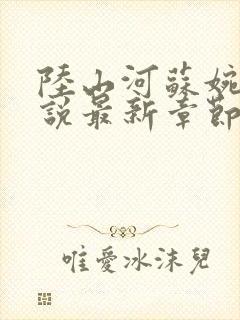 陸山河蘇婉
說最新章節
唯愛冰沫兒